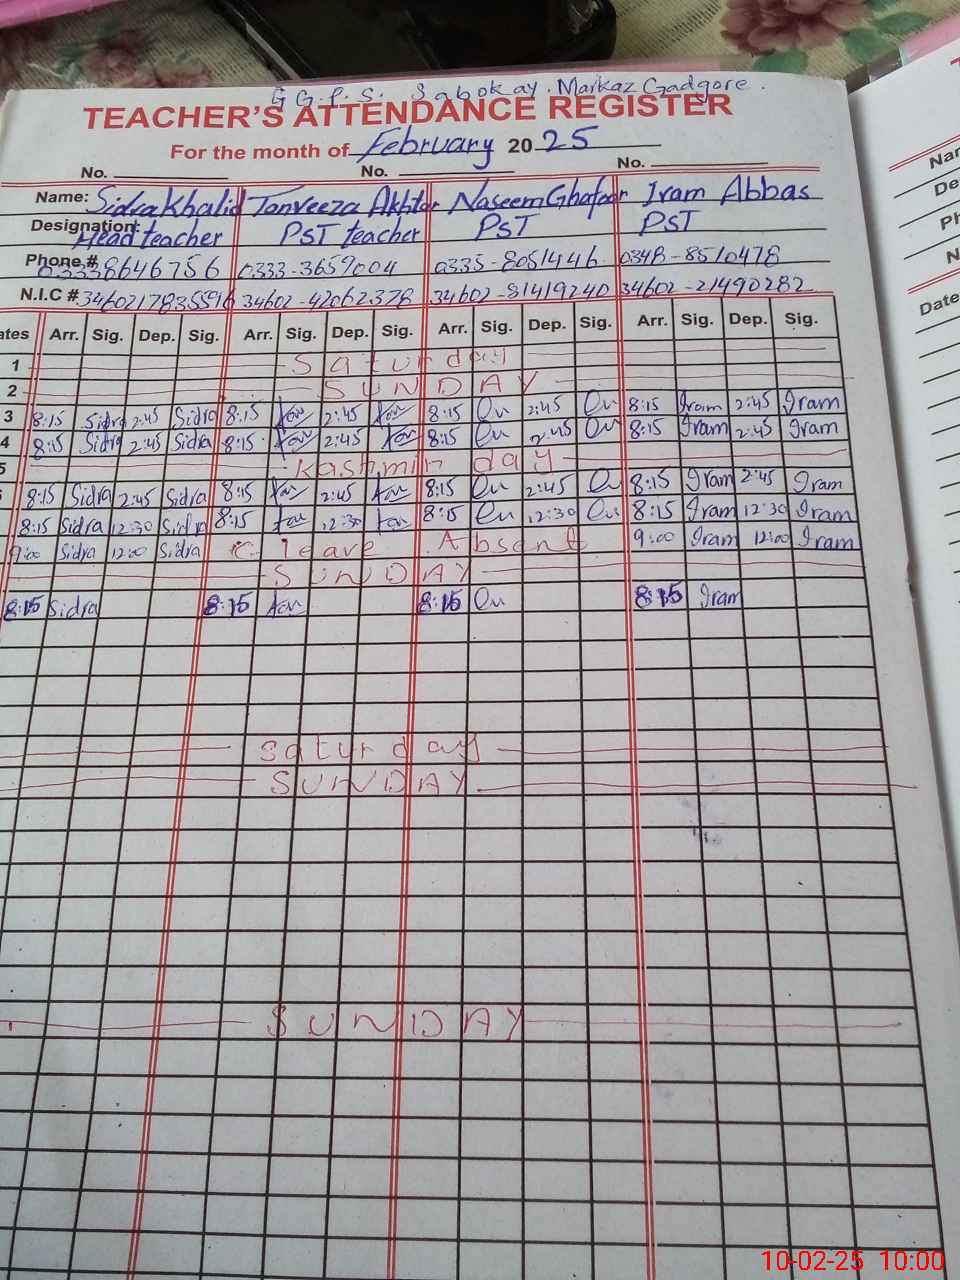 G.G.P.S. Sabokay. Markaz Gadgore.
TEACHER'S ATTENDANCE REGISTER
For the month of February 20 25
No. No. No.
Name: Sidra Khalid Tanveeza Akhtar Naseem Ghafoor Iram Abbas
Designation: Head teacher PST teacher PST PST
Phone # 03338646756 0333-3659004 0335-8051446 0348-8510478
N.I.C # 3460217835596 34602-42062378 34602-81419240 34602-21490282
ates Arr. Sig. Dep. Sig. Arr. Sig. Dep. Sig. Arr. Sig. Dep. Sig. Arr. Sig. Dep. Sig.
1 Saturday
2 SUNDAY
3 8:15 Sidra 2:45 Sidra 8:15 2:45 8:15 2:45 8:15 Iram 2:45 Iram
4 8:15 Sidra 2:45 Sidra 8:15 2:45 8:15 2:45 8:15 Iram 2:45 Iram
5 Kashmir day
8:15 Sidra 2:45 Sidra 8:15 2:45 8:15 2:45 8:15 Iram 2:45 Iram
8:15 Sidra 12:30 Sidra 8:15 12:30 8:15 12:30 8:15 Iram 12:30 Iram
9:00 Sidra 12:00 Sidra C leave Absent 9:00 Iram 12:00 Iram
SUNDAY
8:15 Sidra 8:15 8:15 8:15 Iram
Saturday
SUNDAY
SUNDAY
Nam
De
Ph
N
Date
10-02-25 10:00